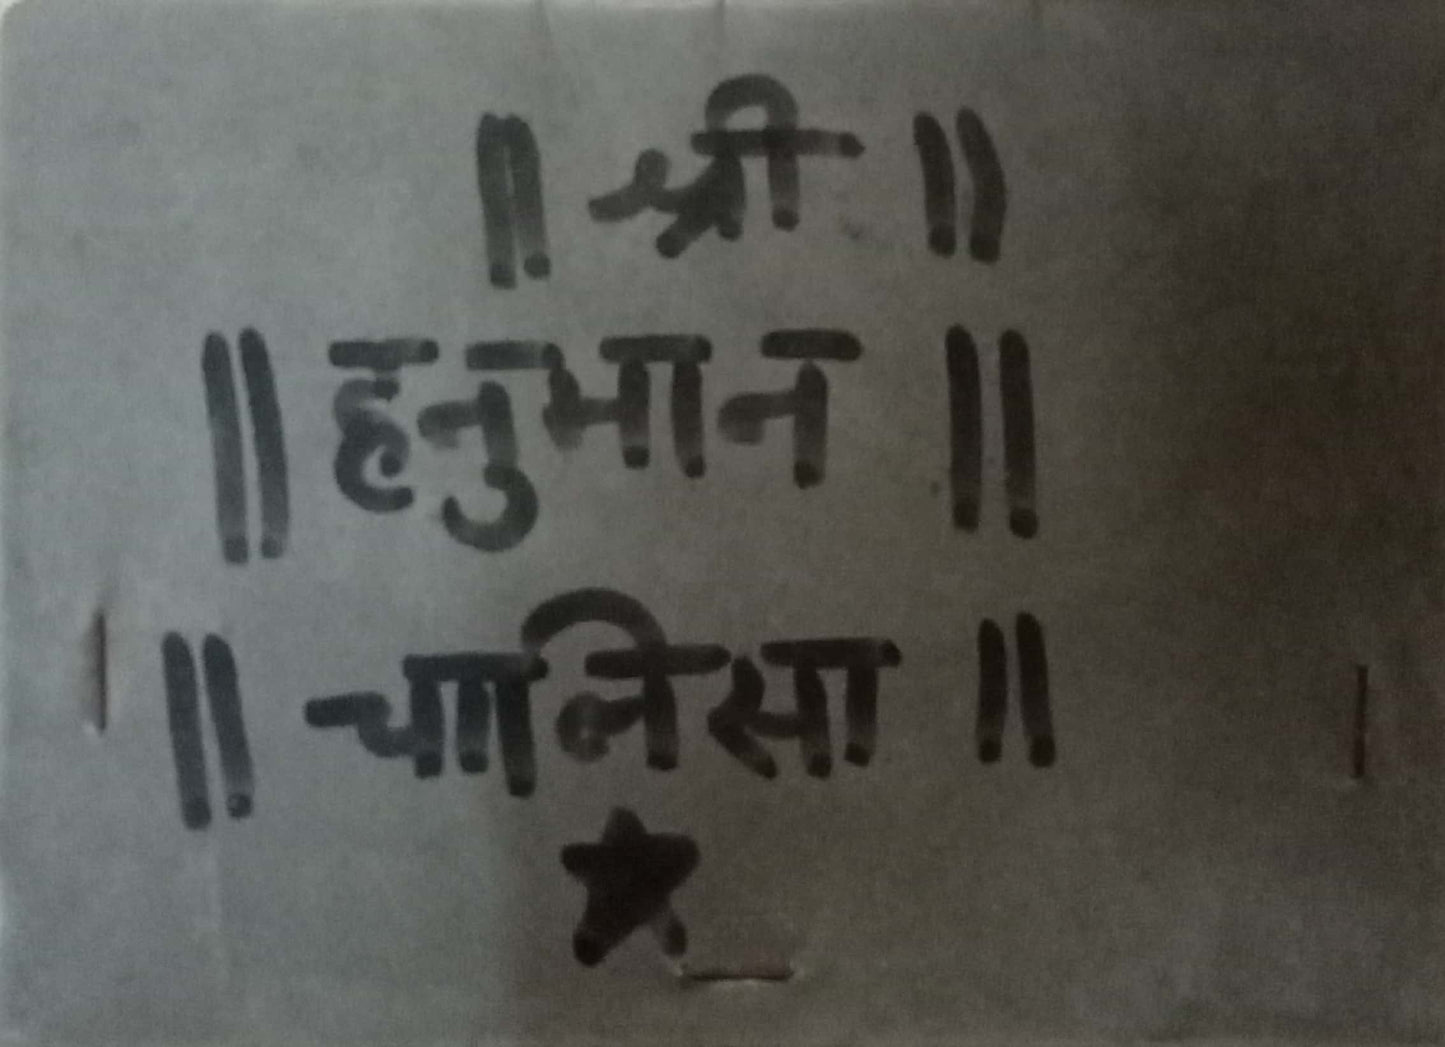 ॥ श्री ॥
॥ हनुमान ॥
॥ चालिसा ॥